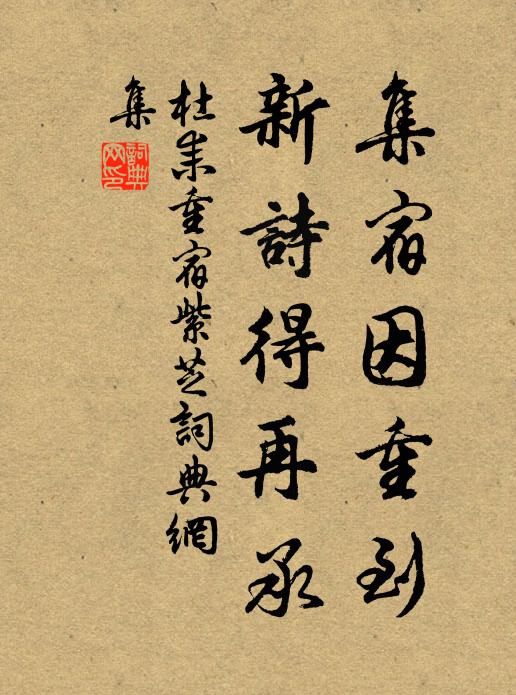 集宿因重到
新詩得再承
杜耒重宿紫芝詞典網
集
詞典網印